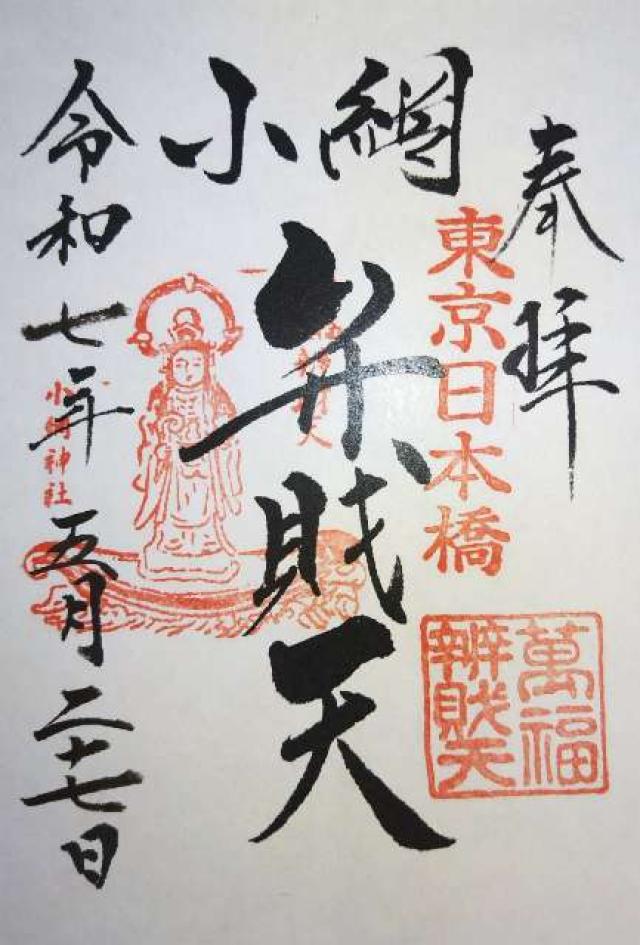 奉拝
東京日本橋
萬福
辨財天
小網
弁財天
小網神社
令和七年五月二十七日